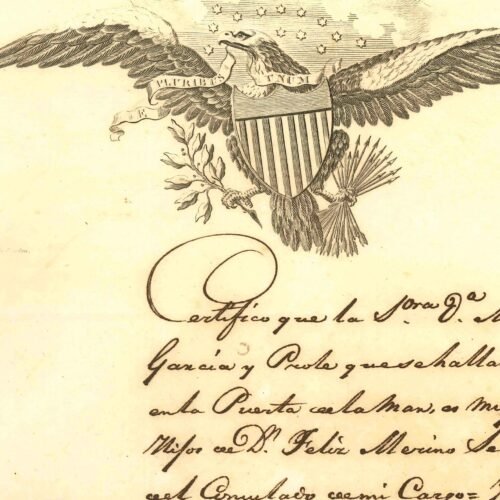 E PLURIBUS UNUM
Certifico que la S.ora D.a M
Garcia y Prole que se halla
en la Puerta de la Mar, es mu
Hijos de D.n Feliz Merino Se
del Consulado de mi Cargo=